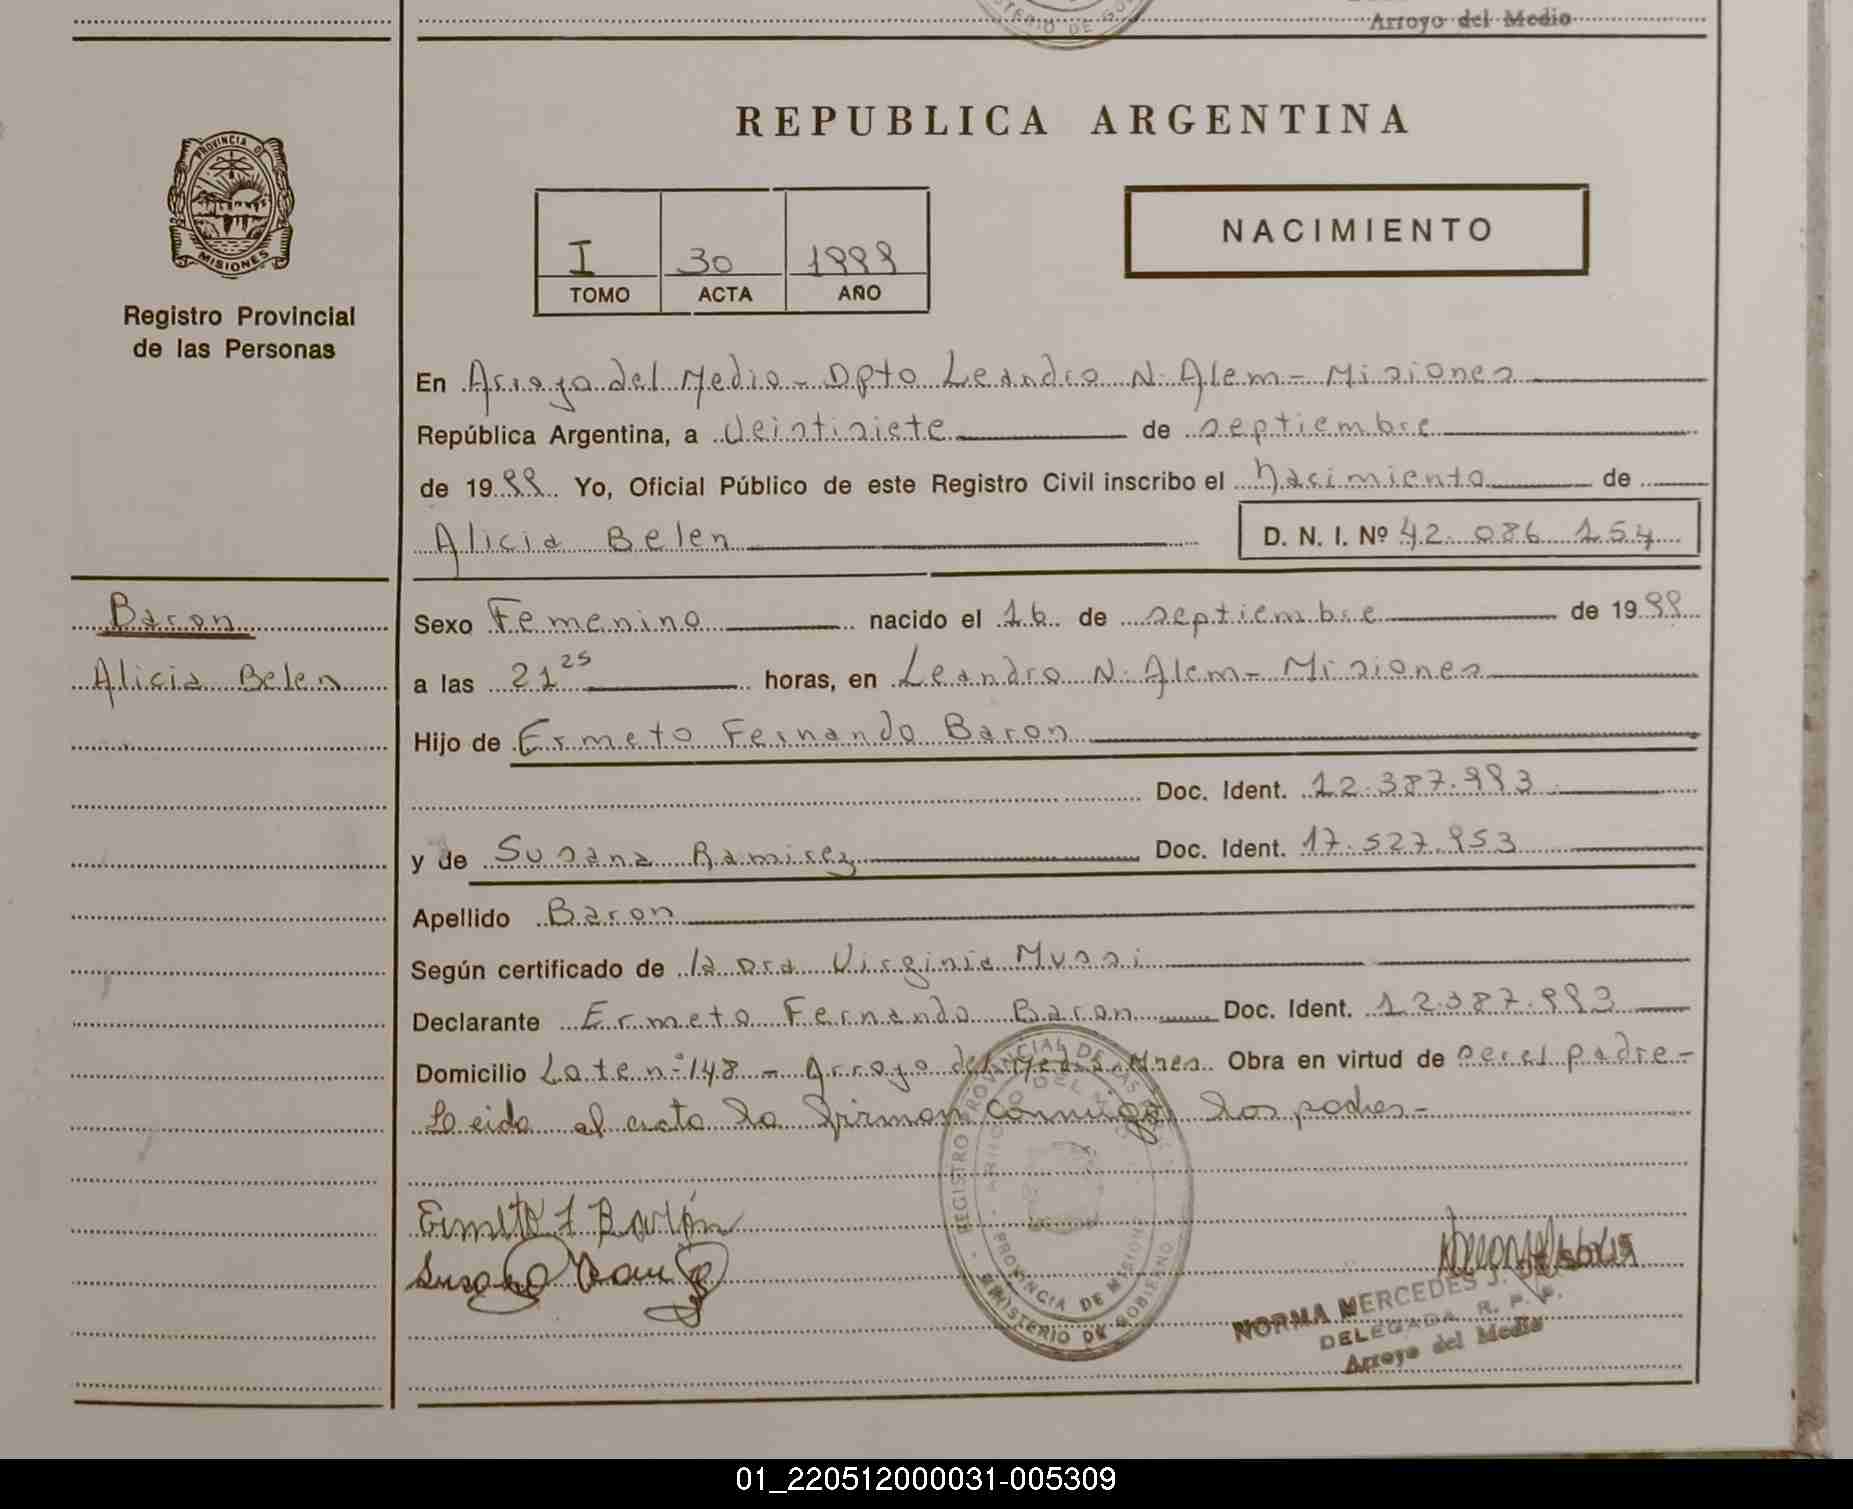 MINISTERIO DE GOB
Arroyo del Medio
PROVINCIA D
MISIONES
Registro Provincial
de las Personas
REPUBLICA ARGENTINA
I 30 1999
TOMO ACTA AÑO
NACIMIENTO
En Arroyo del Medio - Dpto Leandro N. Alem - Misiones
República Argentina, a veintisiete de septiembre
de 1999 Yo, Oficial Público de este Registro Civil inscribo el nacimiento de
Alicia Belen D. N. I. Nº 42.086.154
Baron
Alicia Belen
Sexo Femenino nacido el 16 de septiembre de 1999
a las 21 25 horas, en Leandro N. Alem - Misiones
Hijo de Ermeto Fernando Baron
Doc. Ident. 12.387.993
y de Susana Ramirez Doc. Ident. 17.527.953
Apellido Baron
Según certificado de la Dra Virginia Mussi
Declarante Ermeto Fernando Baron Doc. Ident. 12.387.993
Domicilio Lote nº 148 - Arroyo del Medio Mnes Obra en virtud de ser el padre -
Leido el acta la firman conmigo los padres -
Ermeto F Barón
Susana Ramirez
REGISTRO PROVINCIAL DE LAS
ARROYO DEL
PROVINCIA DE MISIONES
MINISTERIO DE GOBIERNO
NORMA MERCEDES J.
DELEGADA R. P. P.
Arroyo del Medio
01_220512000031-005309